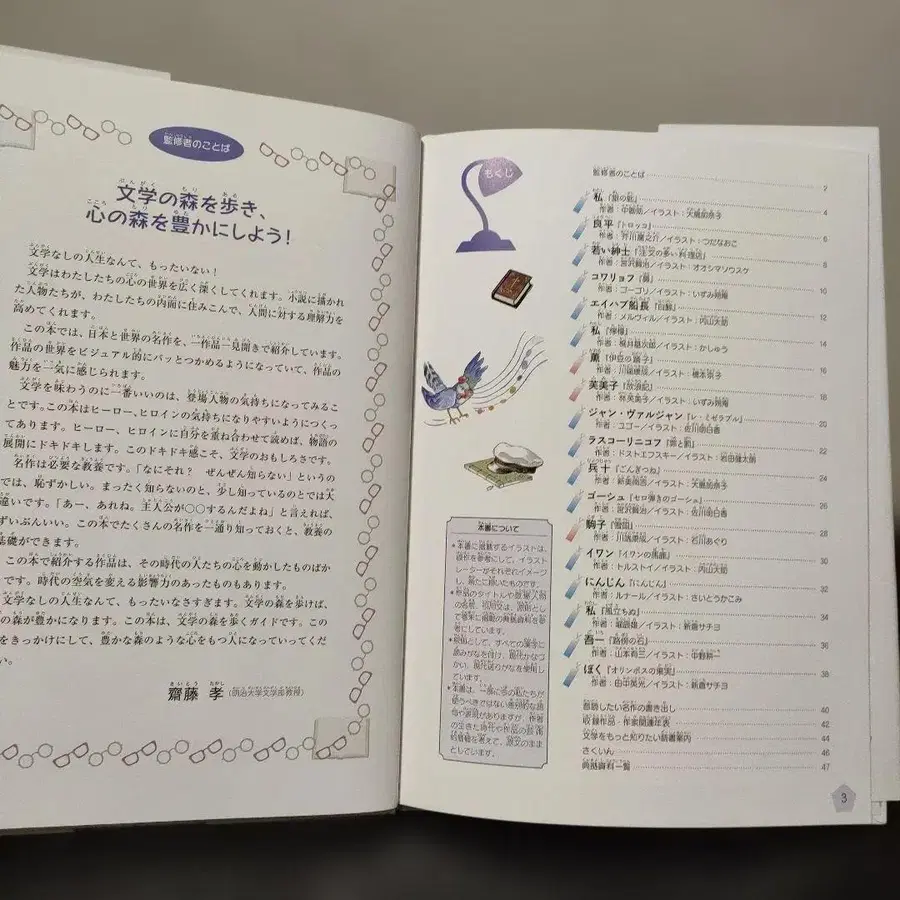 監修者のことば
文学の森を歩き、
心の森を豊かにしよう！
文学なしの人生なんて、もったいない！
文学はわたしたちの心の世界を広く深くしてくれます。小説に描かれ
た人物たちが、わたしたちの内面に住みこんで、人間に対する理解力を
高めてくれます。
この本では、日本と世界の名作を、一作品一見開きで紹介しています。
作品の世界をビジュアル的にパッとつかめるようになっていて、作品の
魅力を一気に感じられます。
文学を味わうのに一番いいのは、登場人物の気持ちになってみるこ
とです。この本はヒーロー、ヒロインの気持ちになりやすいようにつくっ
てあります。ヒーロー、ヒロインに自分を重ね合わせて読めば、物語の
展開にドキドキします。このドキドキ感こそ、文学のおもしろさです。
名作は必要な教養です。「なにそれ？　ぜんぜん知らない」というの
では、恥ずかしい。まったく知らないのと、少し知っているのとでは大
違いです。「あー、あれね。主人公が〇〇するんだよね」と言えれば、
ずいぶんいい。この本でたくさんの名作を一通り知っておくと、教養の
基礎ができます。
この本で紹介する作品は、その時代の人たちの心を動かしたものばか
です。時代の空気を変える影響力のあったものもあります。
文学なしの人生なんて、もったいなさすぎます。文学の森を歩けば、
の森が豊かになります。この本は、文学の森を歩くガイドです。この
をきっかけにして、豊かな森のような心をもつ人になっていってくだ
い。
齋藤 孝（明治大学文学部教授）
もくじ
監修者のことば 2
私『銀の匙』 4
作者：中勘助／イラスト：大庭加奈子
良平『トロッコ』 6
作者：芥川龍之介／イラスト：つだなおこ
若い紳士『注文の多い料理店』 8
作者：宮沢賢治／イラスト：オオシマソウスケ
コワリョフ『鼻』 10
作者：ゴーゴリ／イラスト：いずみ朔庵
エイハブ船長『白鯨』 12
作者：メルヴィル／イラスト：内山大助
私『檸檬』 14
作者：梶井基次郎／イラスト：かしゅう
薫『伊豆の踊子』 16
作者：川端康成／イラスト：橋本京子
芙美子『放浪記』 18
作者：林芙美子／イラスト：いずみ朔庵
ジャン・ヴァルジャン『レ・ミゼラブル』 20
作者：ユゴー／イラスト：佐川明日香
ラスコーリニコフ『罪と罰』 22
作者：ドストエフスキー／イラスト：岩田健太朗
兵十『ごんぎつね』 24
作者：新美南吉／イラスト：大庭加奈子
ゴーシュ『セロ弾きのゴーシュ』 26
作者：宮沢賢治／イラスト：佐川明日香
駒子『雪国』 28
作者：川端康成／イラスト：石川あぐり
イワン『イワンの馬鹿』 30
作者：トルストイ／イラスト：内山大助
にんじん『にんじん』 32
作者：ルナール／イラスト：さいとうかこみ
私『風立ちぬ』 34
作者：堀辰雄／イラスト：新倉サチヨ
吾一『路傍の石』 36
作者：山本有三／イラスト：中野耕一
ぼく『オリンポスの果実』 38
作者：田中英光／イラスト：新倉サチヨ
音読したい名作の書き出し 40
収録作品・作家関連年表 42
文学をもっと知りたい読書案内 44
さくいん 46
典拠資料一覧 47
本書について
*本書に掲載するイラストは、
原作を参考にして、イラスト
レーターがそれぞれイメージ
し、新たに描いたものです。
*作品のタイトルや登場人物
の名前、引用文は、原則とし
て巻末に掲載の典拠資料を参
考にしています。
*原則として、すべての漢字に
読みがなを付け、現代かなづか
い、現代送りがなを使用し
ています。
*本書は、一部に今の私たちが
使うべきではない差別的な語
句や表現がありますが、作者
の生きた時代や作品の芸術
的価値を考えて、原文のまま
としています。
3